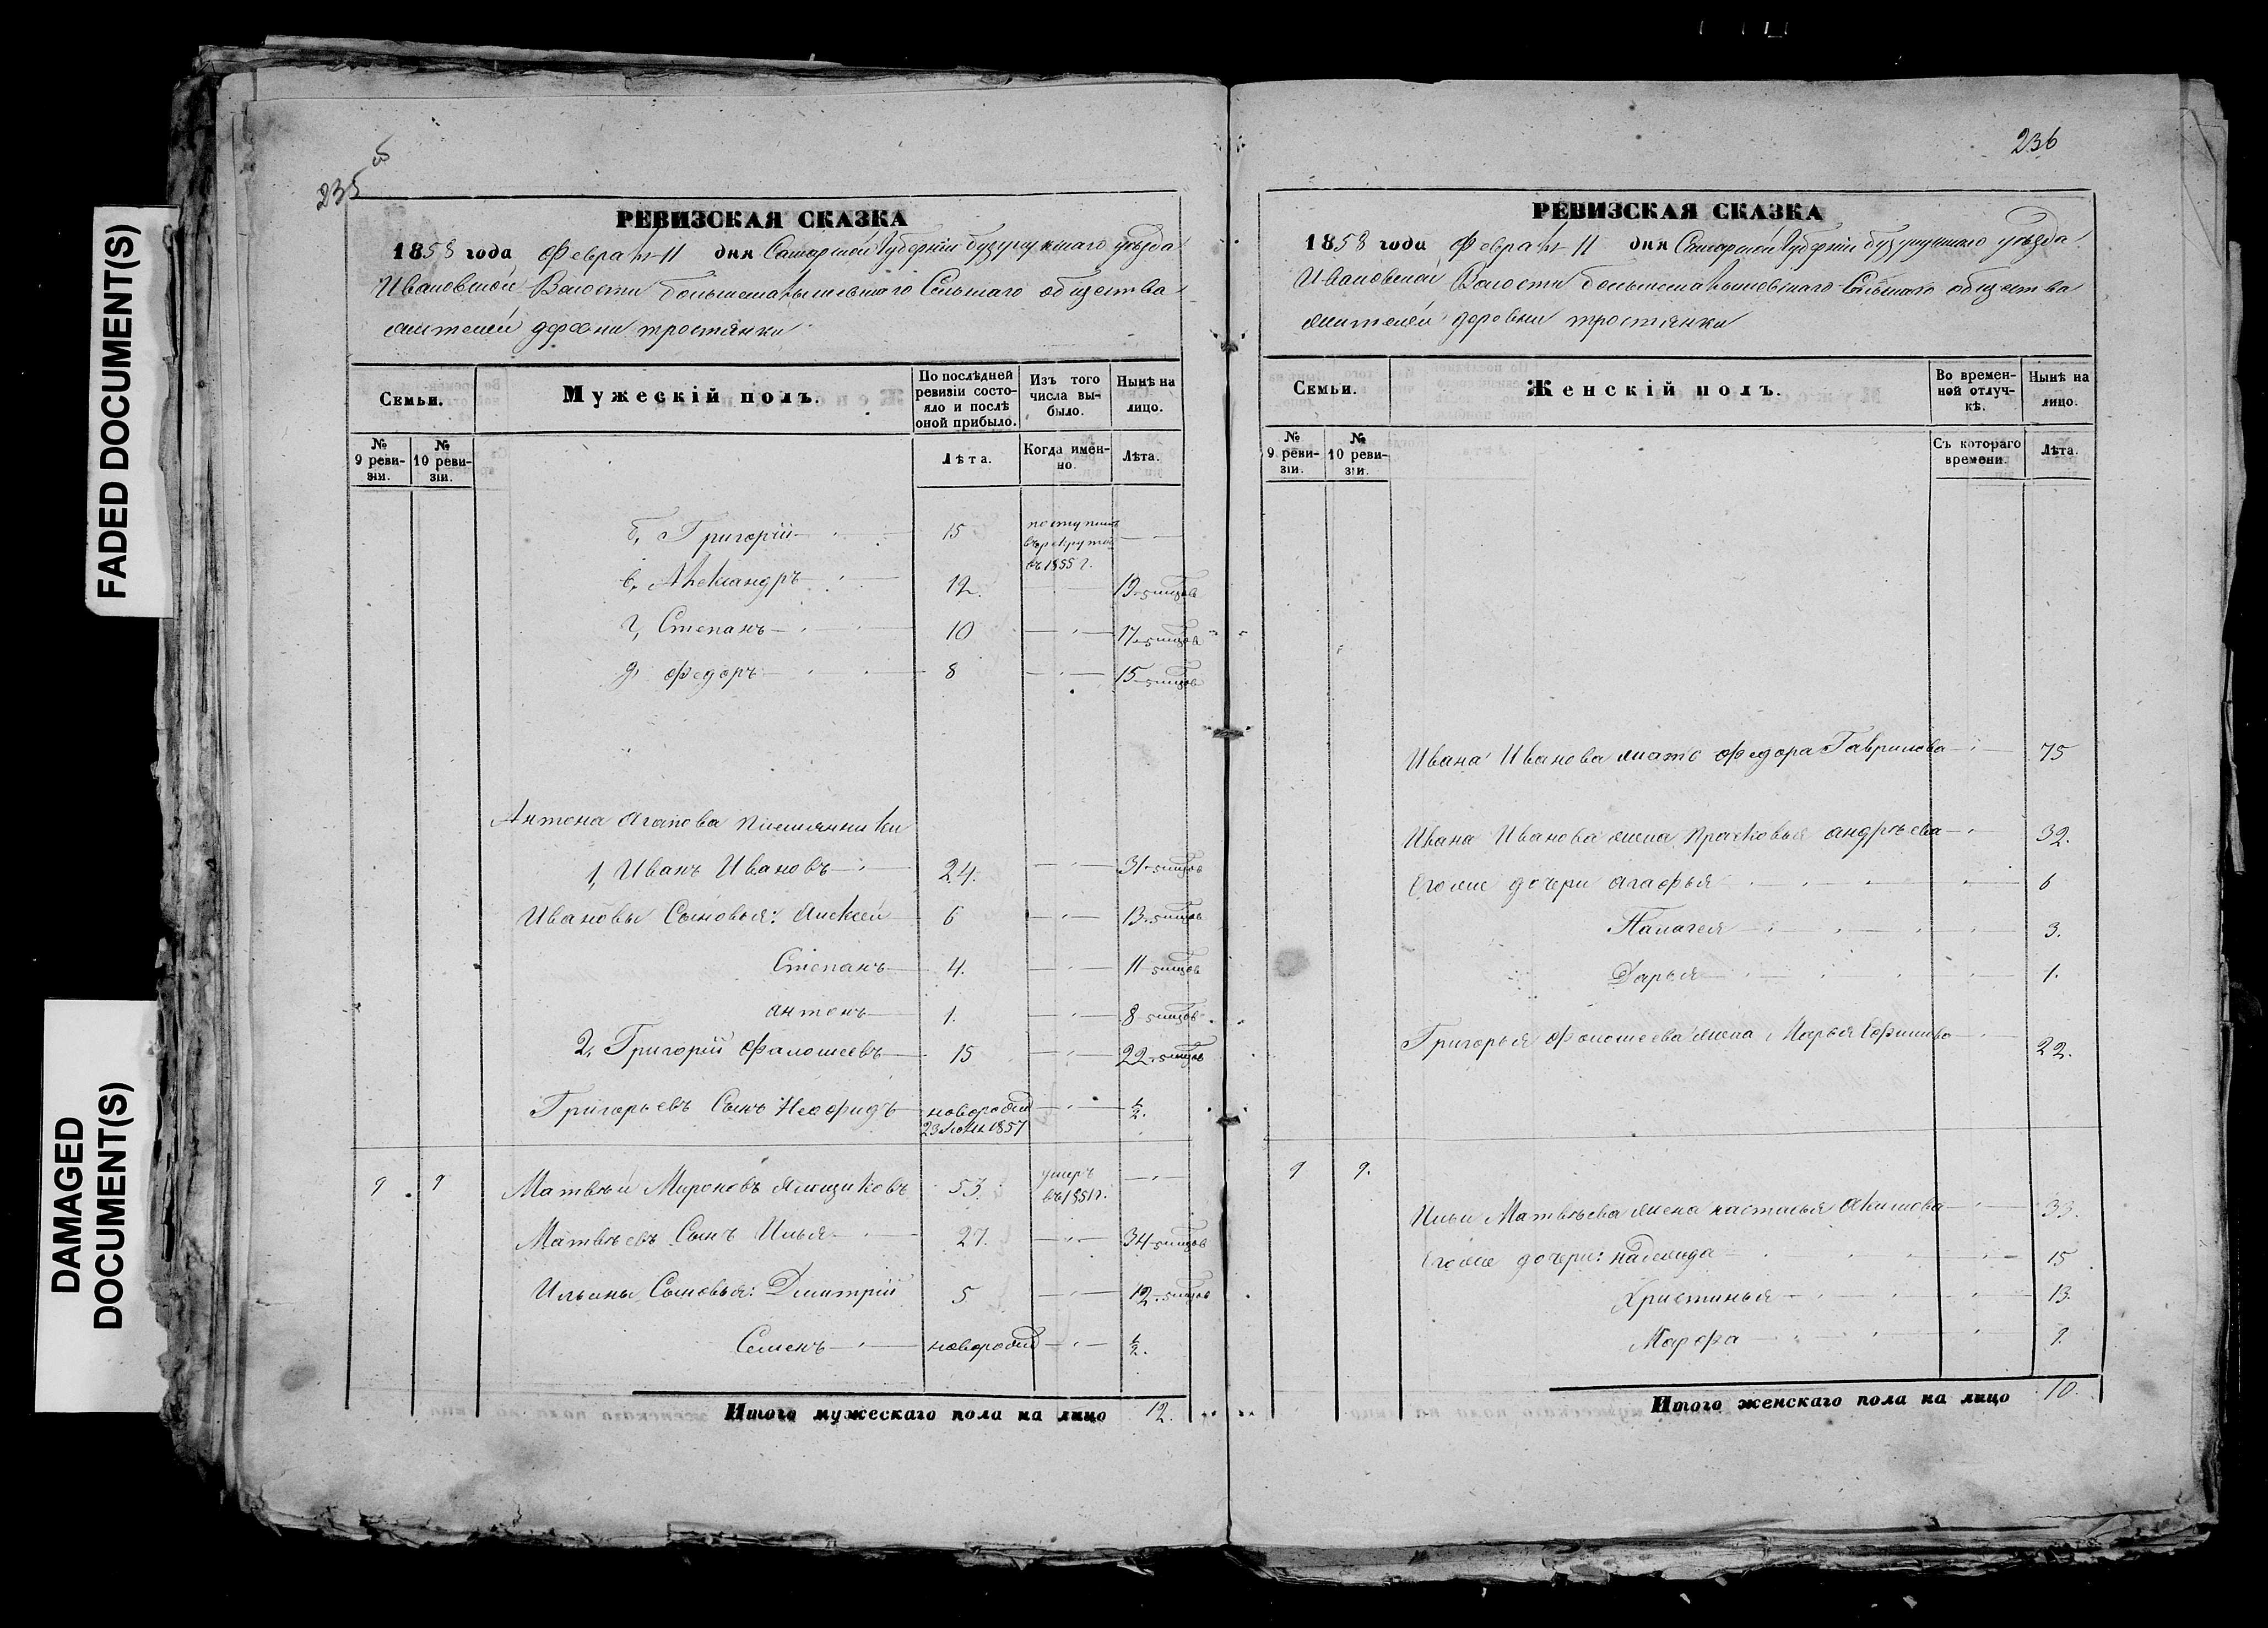 FADED DOCUMENT(S)
DAMAGED
DOCUMENT(S)
235 об
РЕВИЗСКАЯ СКАЗКА
1858 года Февраля 11 дня Самарской Губерніи бузулукскаго уѣзда
Ивановской Волости Сельскаго общества
жителей деревни тростянки
Семьи.
Мужескій полъ.
По послѣдней ревизіи состояло и послѣ оной прибыло.
Изъ того числа выбыло.
Нынѣ на лицо.
№ 9 ревизіи.
№ 10 ревизіи.
Лѣта.
Когда именно.
Лѣта.
б, Григорій 15 поступилъ въ рекруты въ 1855 г.
в, Александръ 12. 19-5 мцовъ
г, Степанъ 10 17-5 мцовъ
д, Федоръ 8 15-5 мцовъ
Антона Агапова племянники
1, Иванъ Ивановъ 24. 31-5 мцовъ
Ивановы Сыновья: Алексей 6 13-5 мцовъ
Степанъ 4. 11-5 мцовъ
антонъ 1. 8-5 мцовъ
2, Григорій 15 22-5 мцовъ
Григорьевъ Сынъ новорожд 23 1857 ½.
9 9 Матвѣй Мироновъ Ямщиковъ 53. умеръ въ 1851 г.
Матвѣевъ Сынъ Илья 27. 34-5 мцовъ
Ильины Сыновья: Дмитрій 5 12-5 мцовъ
Семенъ новорожд ½.
Итого мужескаго пола на лицо 12.
236
РЕВИЗСКАЯ СКАЗКА
1858 года Февраля 11 дня Самарской Губерніи бузулукскаго уѣзда
Ивановской Волости Сельскаго общества
жителей деревни тростянки
Семьи.
Женскій полъ.
Во временной отлучкѣ.
Нынѣ на лицо.
№ 9 ревизіи.
№ 10 ревизіи.
Съ котораго времени.
Лѣта.
Ивана Иванова мать Федора Гаврилова 75
Ивана Иванова жена Прасковья андрѣева 32.
Егоже дочери Агафья 6
Палагея 3.
Дарья 1.
Григорья жена Марья Ефимова 22.
9 9.
Ильи Матвѣева жена настасья Акимова 33.
Егоже дочери: надежда 15
Христинья 13.
Марфа
Итого женскаго пола на лицо 10.